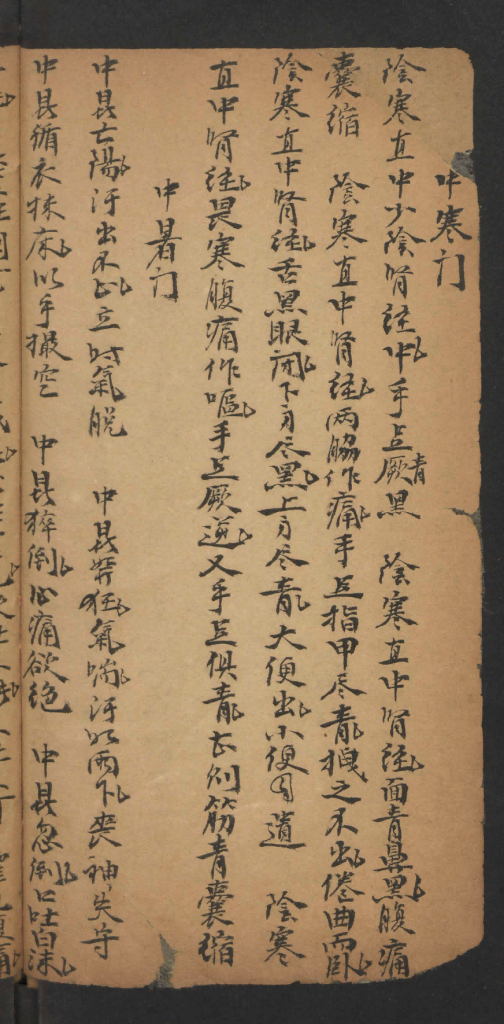 中寒门
陰寒直中少陰腎経中手足厥青黑　陰寒直中腎経面青鼻黑腹痛
囊缩　陰寒直中腎経两脇作痛手足指甲尽青拽之不出倦曲而卧
陰寒直中腎経舌黑眼闭下身尽黑上身尽青大便出小便自遺　陰寒
直中腎経畏寒腹痛作嘔手足厥逆又手足俱青甚则筋青囊缩
中暑门
中暑亡陽汗出不止立时氣脱　中暑發狂氣喘汗如雨下丧神失守
中暑循衣抹床以手撮空　中暑猝倒心痛欲绝　中暑忽倒口吐白沫